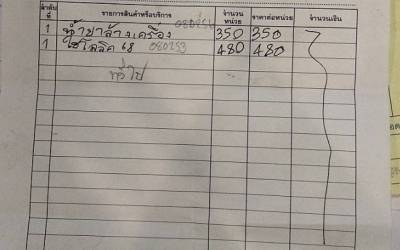 ลำดับที่ รายการสินค้าหรือบริการ จำนวนหน่วย ราคาต่อหน่วย จำนวนเงิน
1 น้ำยาล้างเครื่อง 350 350
1 ไฮโลลิค 68 080253 480 480
ทั่วไป